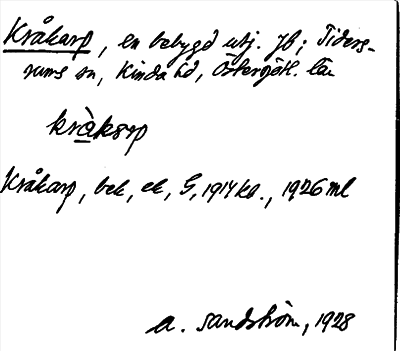 Kråkarp, en bebygd utj. Jb; Tiders-
rums sn, Kinda hd, Östergötl. län
kràksrp
Kråkarp, bek, ek, G, 1917 ka., 1926 ml
A. Sandström, 1928